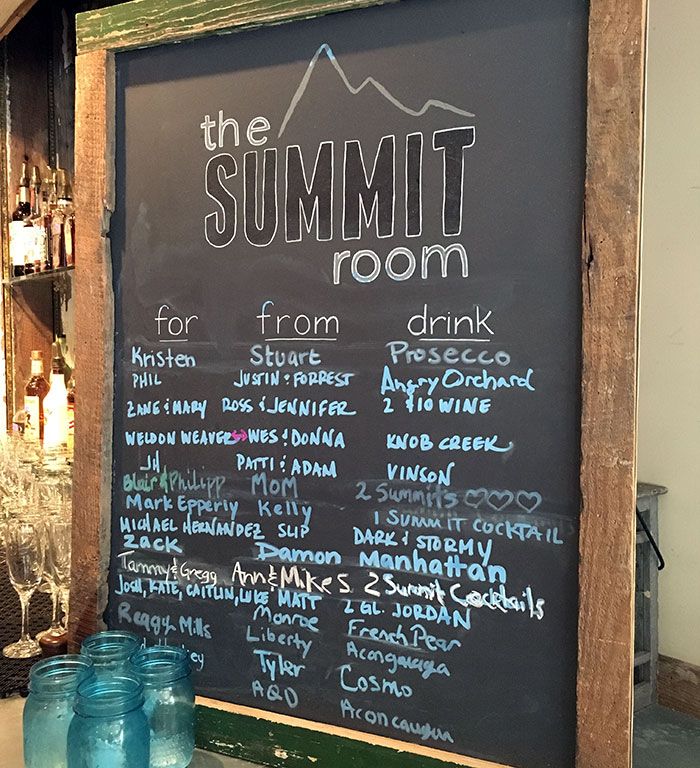 the
SUMMIT
room
for from drink
Kristen Stuart Prosecco
PHIL JUSTIN & FORREST Angry Orchard
ZANE & MARY ROSS & JENNIFER 2 $10 WINE
WELDON WEAVER ↔ WES & DONNA KNOB CREEK
JH PATTI & ADAM VINSON
Blair & Philipp MOM 2 Summits ♡♡♡
Mark Epperly Kelly 1 SUMMIT COCKTAIL
MICHAEL HERNANDEZ SLIP DARK & STORMY
ZACK Damon Manhattan
Tammy & Gregg Ann & Mike S. 2 Summit Cocktails
JOSH, KATE, CAITLIN, LUKE MATT 2 GL. JORDAN
Reggy Mills Monroe French Pear
Liberty Acongauga
Tyler Cosmo
AQD Aconcaugua